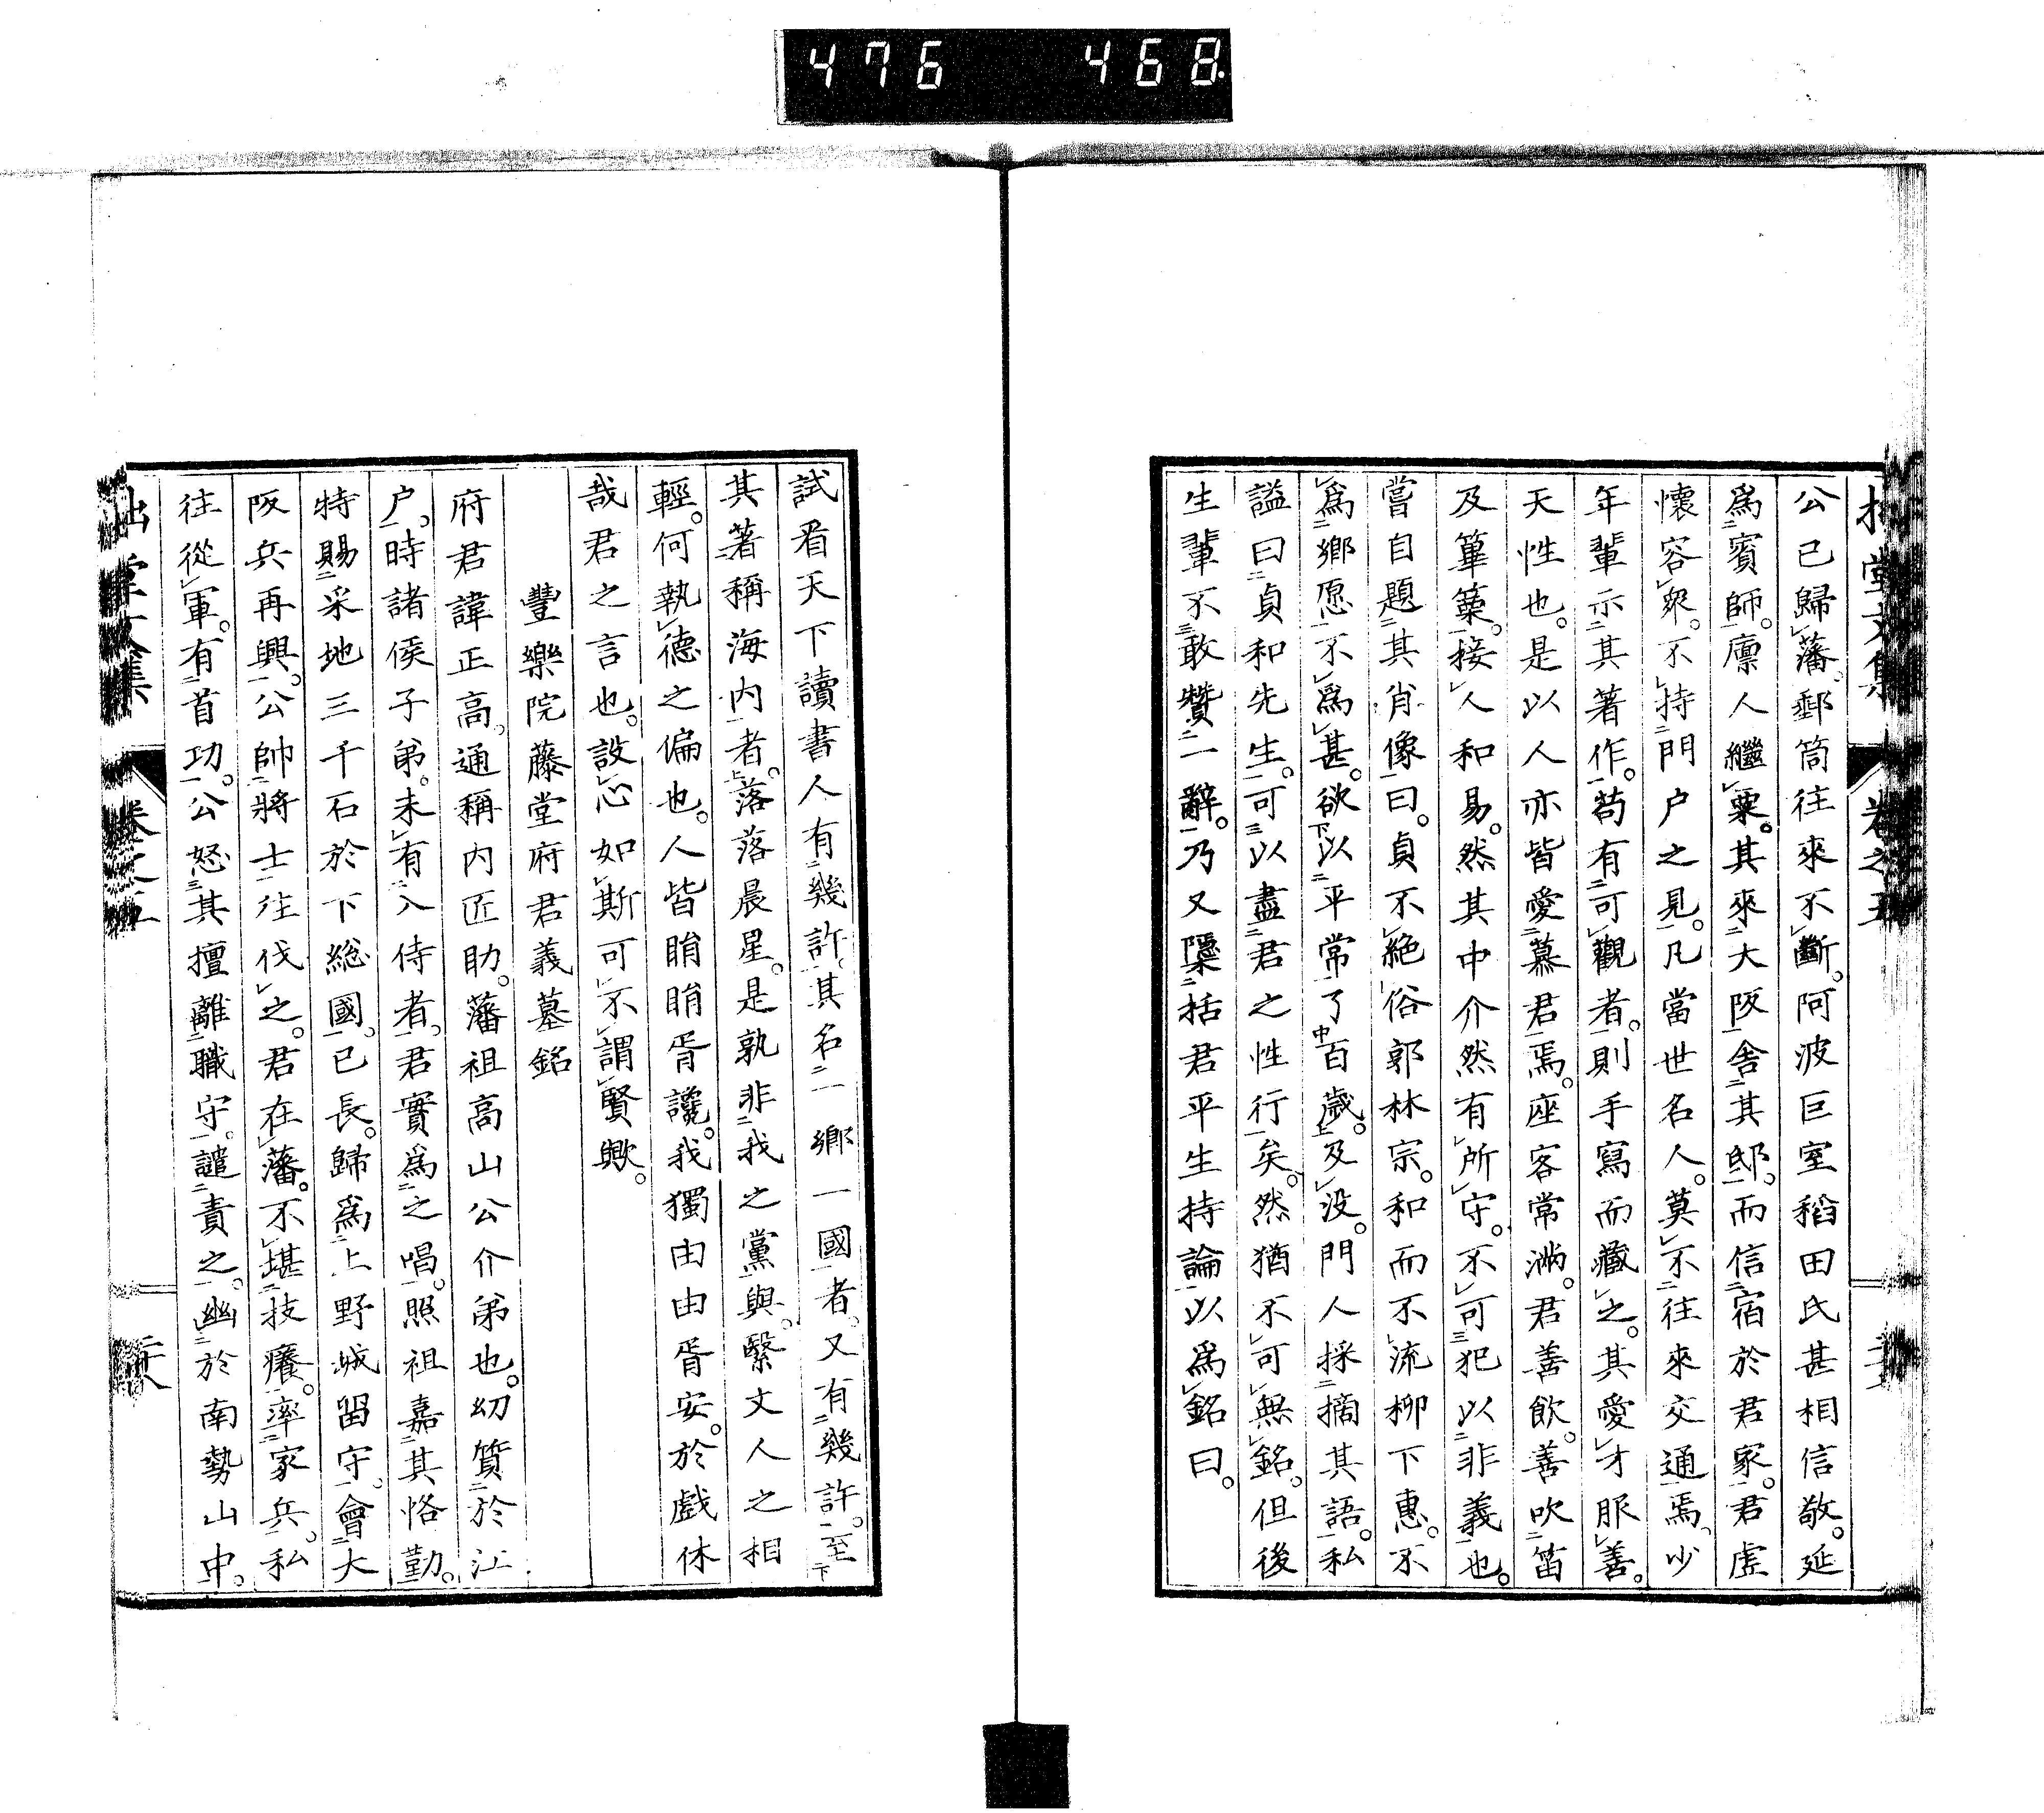 476 468
堂文集 卷之五
公已歸藩。郵筒往來不斷。阿波巨室稻田氏甚相信敬。延
爲賓師。廩人繼粟。其來大阪舍其邸。而信宿於君家。君虛
懷容衆。不持門户之見。凡當世名人。莫不往來交通焉。少
年輩示其著作。苟有可觀者。則手寫而藏之。其愛才服善。
天性也。是以人亦皆愛慕君焉。座客常滿。君善飲。善吹笛
及篳篥。接人和易。然其中介然有所守。不可犯以非義也。
嘗自題其肖像曰。貞不絶俗郭林宗。和而不流柳下惠。不
爲鄉愿不爲甚。欲以平常了百歲。及没。門人採摘其語。私
謚曰貞和先生。可以盡君之性行矣。然猶不可無銘。但後
生輩不敢贊一辭。乃又檃括君平生持論以爲銘曰。
試看天下讀書人有幾許。其名一鄉一國者。又有幾許。至
其著稱海内者。落落晨星。是孰非我之黨與。繄文人之相
輕。何執德之偏也。人皆睊睊胥讒。我獨由由胥安。於戲休
哉君之言也。設心如斯可不謂賢歟。
豐樂院藤堂府君義墓銘
府君諱正高。通稱内匠助。藩祖高山公介弟也。幼質於江
户。時諸侯子弟。未有入侍者。君實爲之唱。照祖嘉其恪勤。
特賜采地三千石於下総國。已長。歸爲上野城留守。會大
阪兵再興。公帥將士往伐之。君在藩。不堪技癢。率家兵。私
往從軍。有首功。公怒其擅離職守。譴責之。幽於南勢山中。